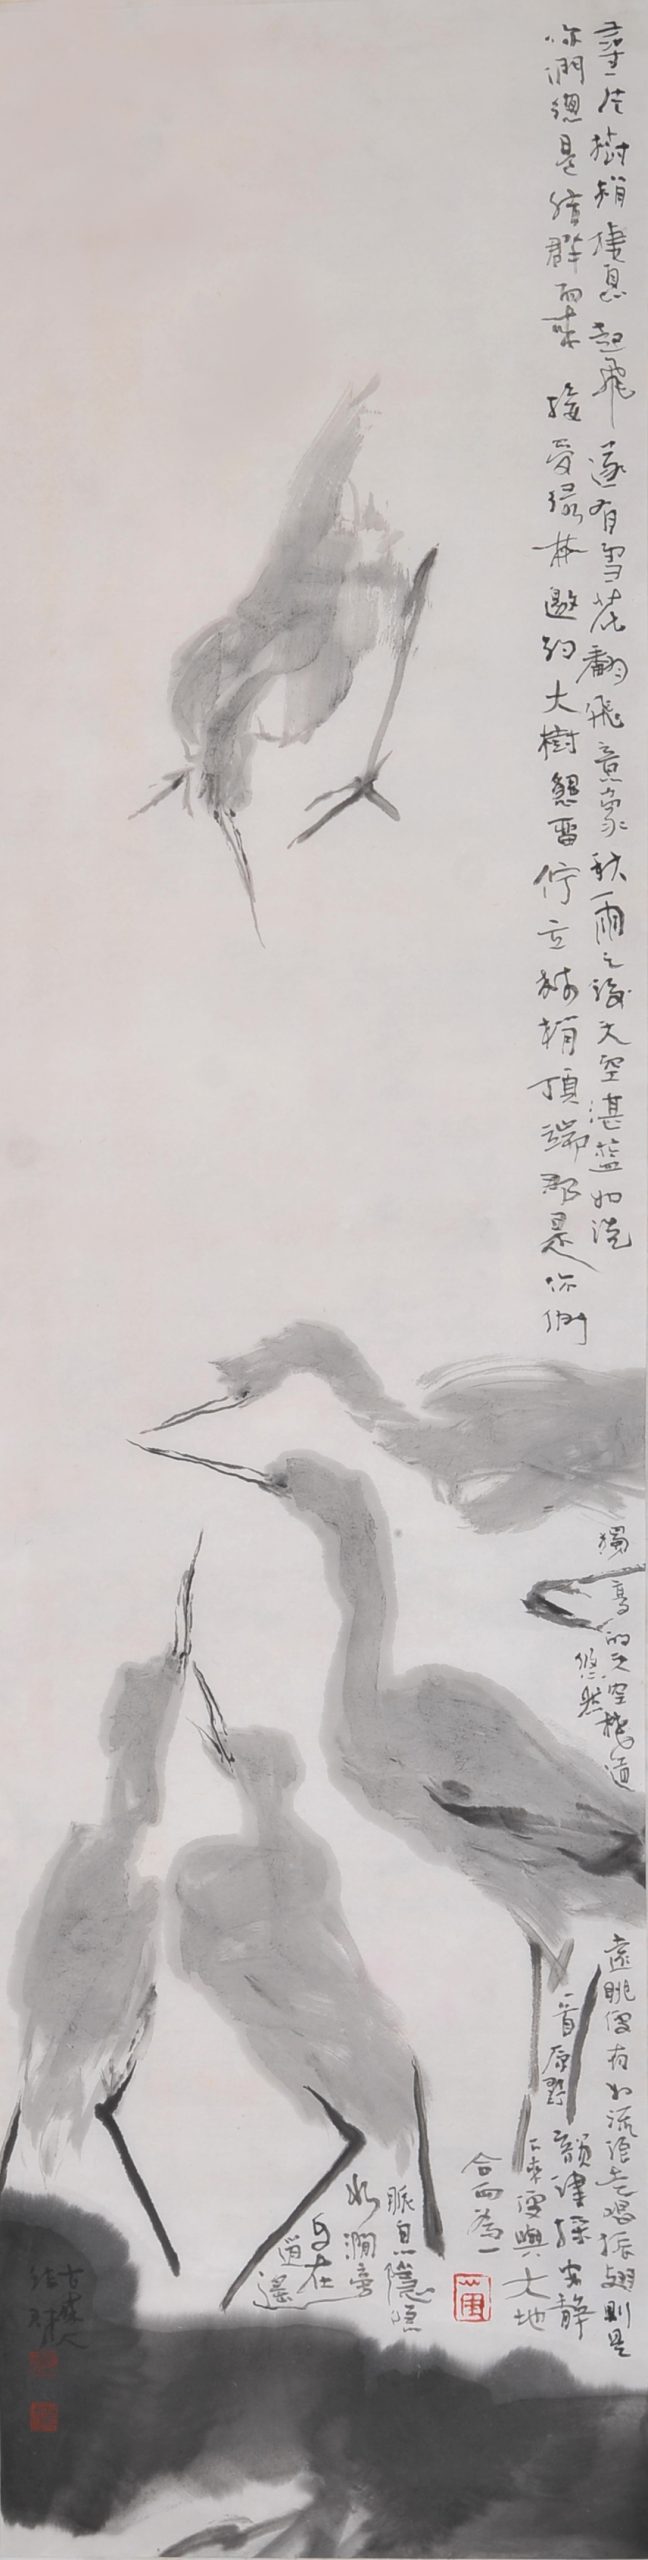 羣居樹梢棲息起飛 遂有雪花翻飛意象秋雨之後天空湛藍如洗
你們總是結群而來 接受綠林邀約大樹懇留佇立枝梢頂端都是你們
獨享的天空棧道
悠然
遠眺便有如流浪之歌振翅則是
一首原野韻律探安靜
下來便與大地
合而為一
脈息隱隱
水澗旁
自在
逍遙